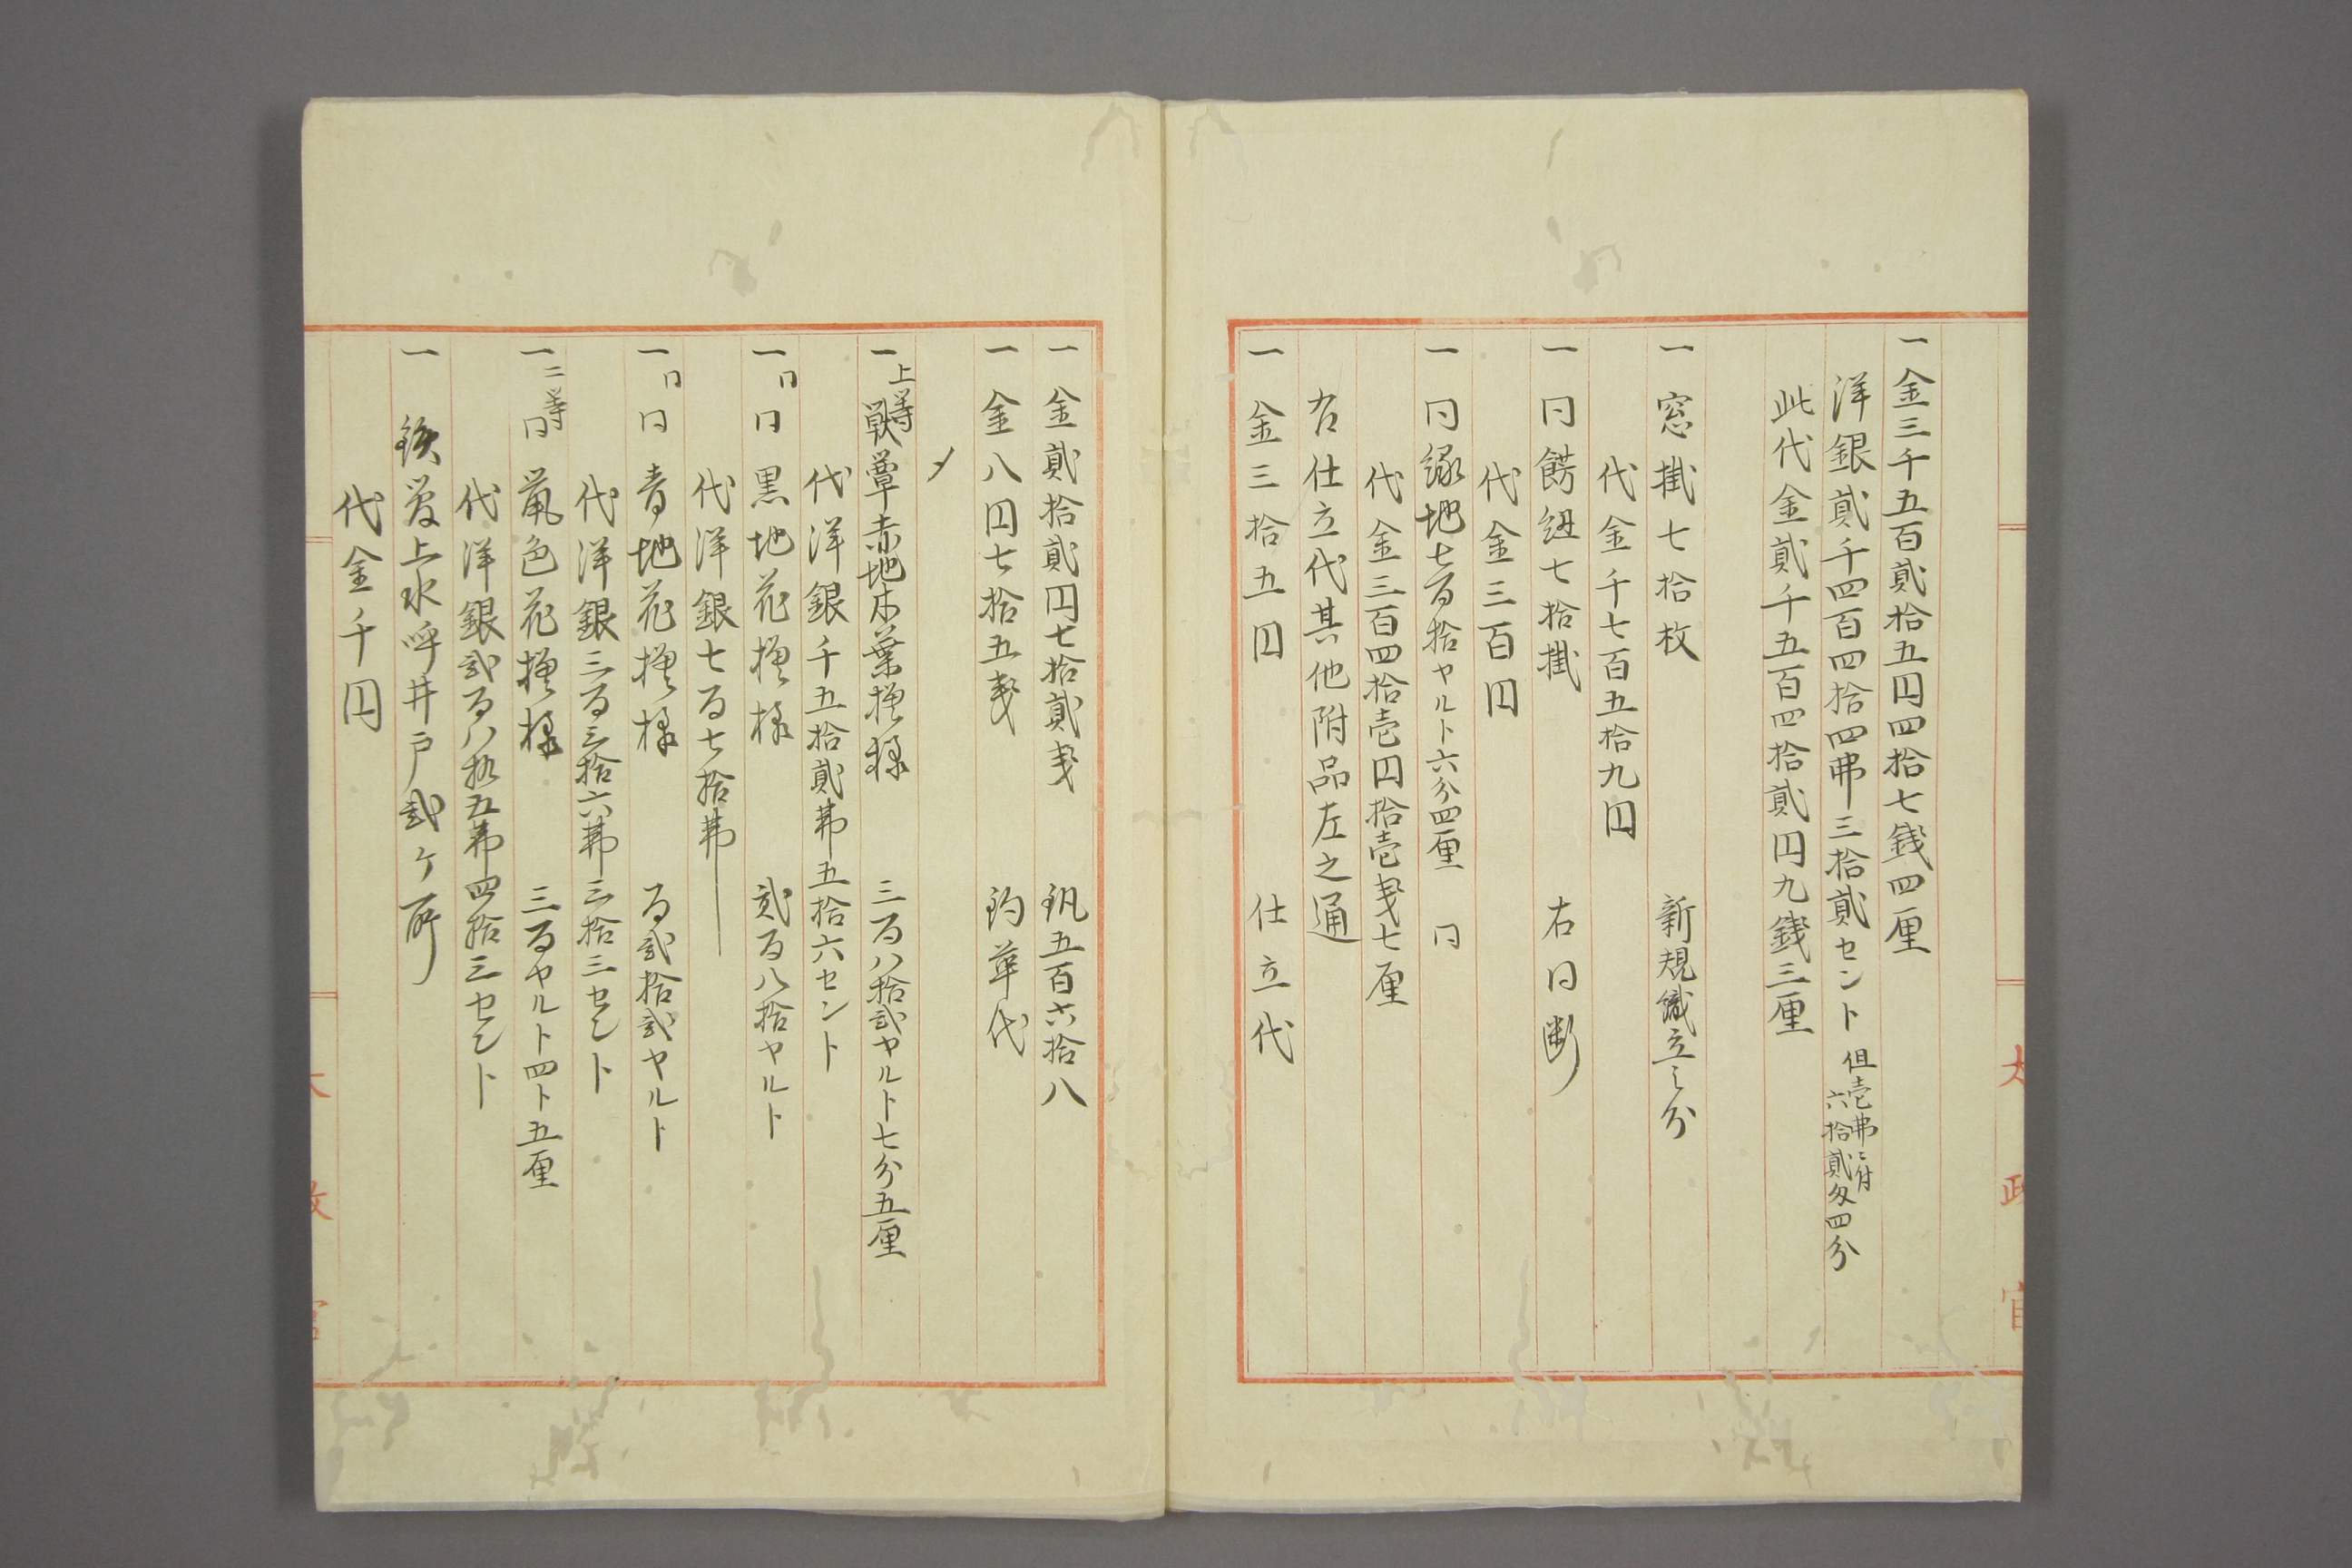 一金三千五百貳拾五円四拾七銭四厘
洋銀貳千四百四拾四弗三拾貳セント
但壱弗ニ付
六拾貳匁四分
此代金貳千五百四拾貳円九銭三厘
一窓掛七拾枚 新規織立之分
代金千七百五拾九円
一同餝紐七拾掛 右同断
代金三百円
一同縁地七百拾ヤルト六分四厘 同
代金三百四拾壱円拾壱銭七厘
右仕立代其他附品左之通
一金三拾五円 仕立代
一金貳拾貳円七拾貳銭 釻五百六拾八
一金八円七拾五銭 釣革代
〆
一上等戦覃赤地木葉模様 三百八拾弐ヤルト七分五厘
代洋銀千五拾貳弗五拾六セント
一同同黒地花模様 貳百八拾ヤルト
代洋銀七百七拾弗
一同同青地花模様 百弐拾弐ヤルト
代洋銀三百三拾六弗三拾三セント
一二等同鼠色花模様 三百ヤルト四ト五厘
代洋銀弐百八拾五弗四拾三セント
一鉄管上水呼井戸弐ヶ所
代金千円
太政官
太政官